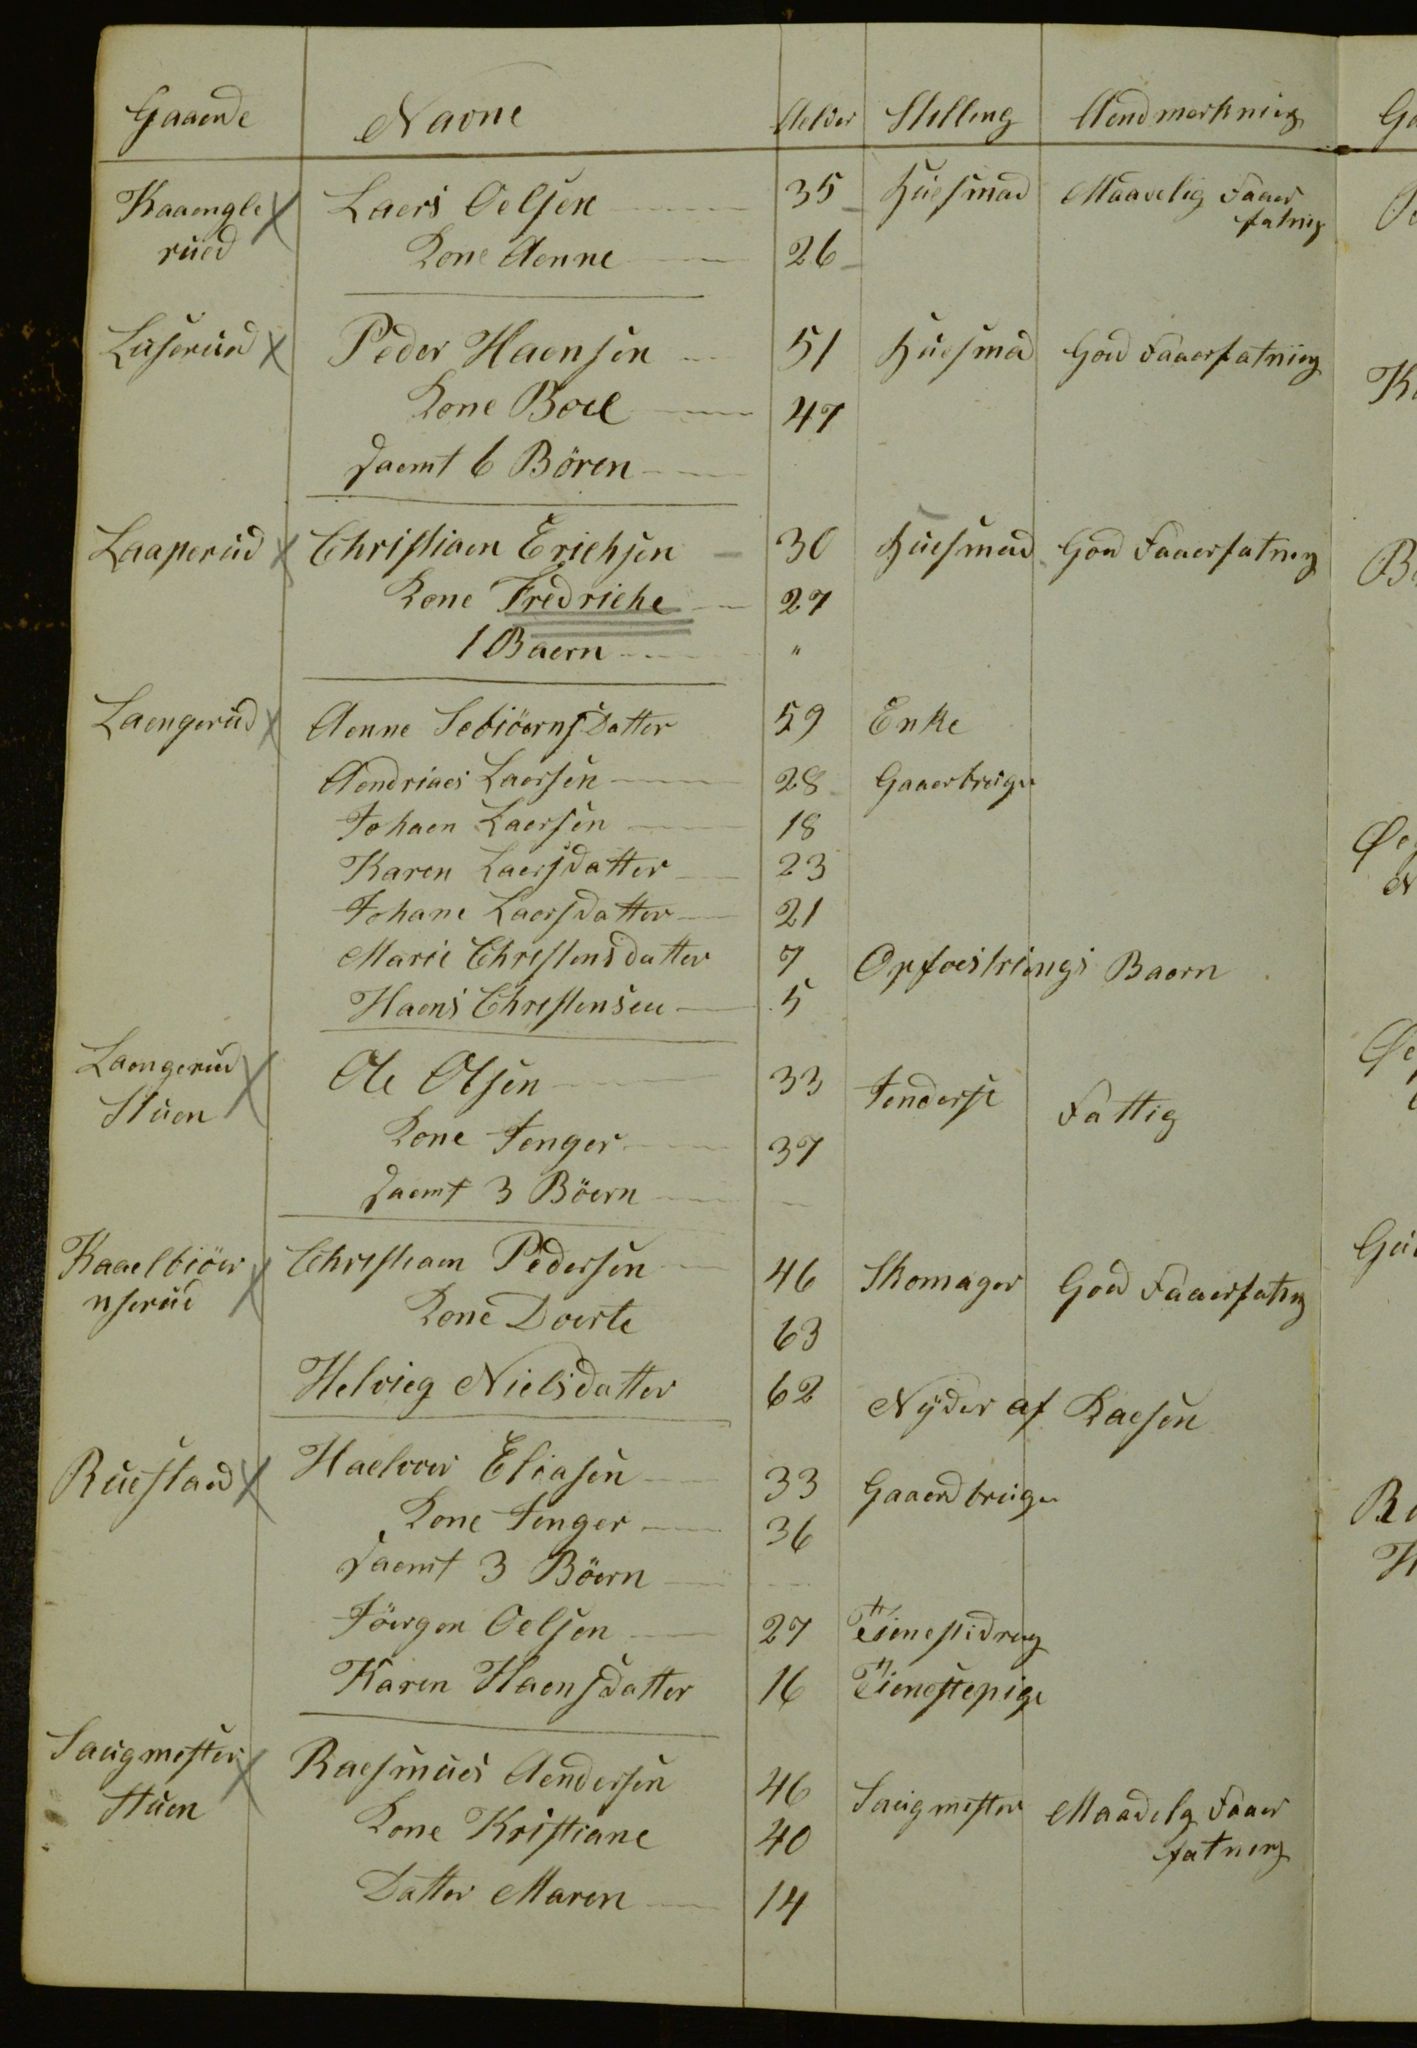 Gaaende Navne Aelder Stelling Aendmerkning
Kaaengle Laers Oelsen 35 Huesmad Maadelig Faaer
rued fatnig
Kone Aenne 26
Luserued Peder Haensen 51 Huesmad Goed Faaerfatning
Kone Boel 47
Saemt 6 Bören
Laaperud Christiaen Erichsen 30 Huesmad God Faaerfatnig
Kone Fredriche 27
1 Baern "
Laengerud Aenne Sebiöerns Datter 59 Enke
Aendriaes Laersen 28 Gaaerbruger
Johaen Laersen 18
Karen Laersdatter 23
Johane Laersdatter 21
Marie Christensdatter 7 Opfoestrings Baern
Haens Christensen 5
Laengerud Ole Olsen 33 Inderst Fattig
Stuen
Kone Inger 37
Saemt 3 Böern
Kaaelbiöer Christiaen Pedersen 46 Skomager God Faaerfatnig
nserud
Kone Doerte 63
Helvieg Nielsdatter 62 Nyder af Kaesen
Ruestaed Haelvoer Eliasen 33 Gaaerdbruger
Kone Inger 36
Saemt 3 Böern
Jöergen Oelsen 27 Tienestedreng
Karen Haensdatter 16 Tienestepige
Saugmester Raesmues Aendersen 46 Saugmester Maadelg Faaer
Stuen fatnerg
Kone Kristiane 40
Datter Maren 14